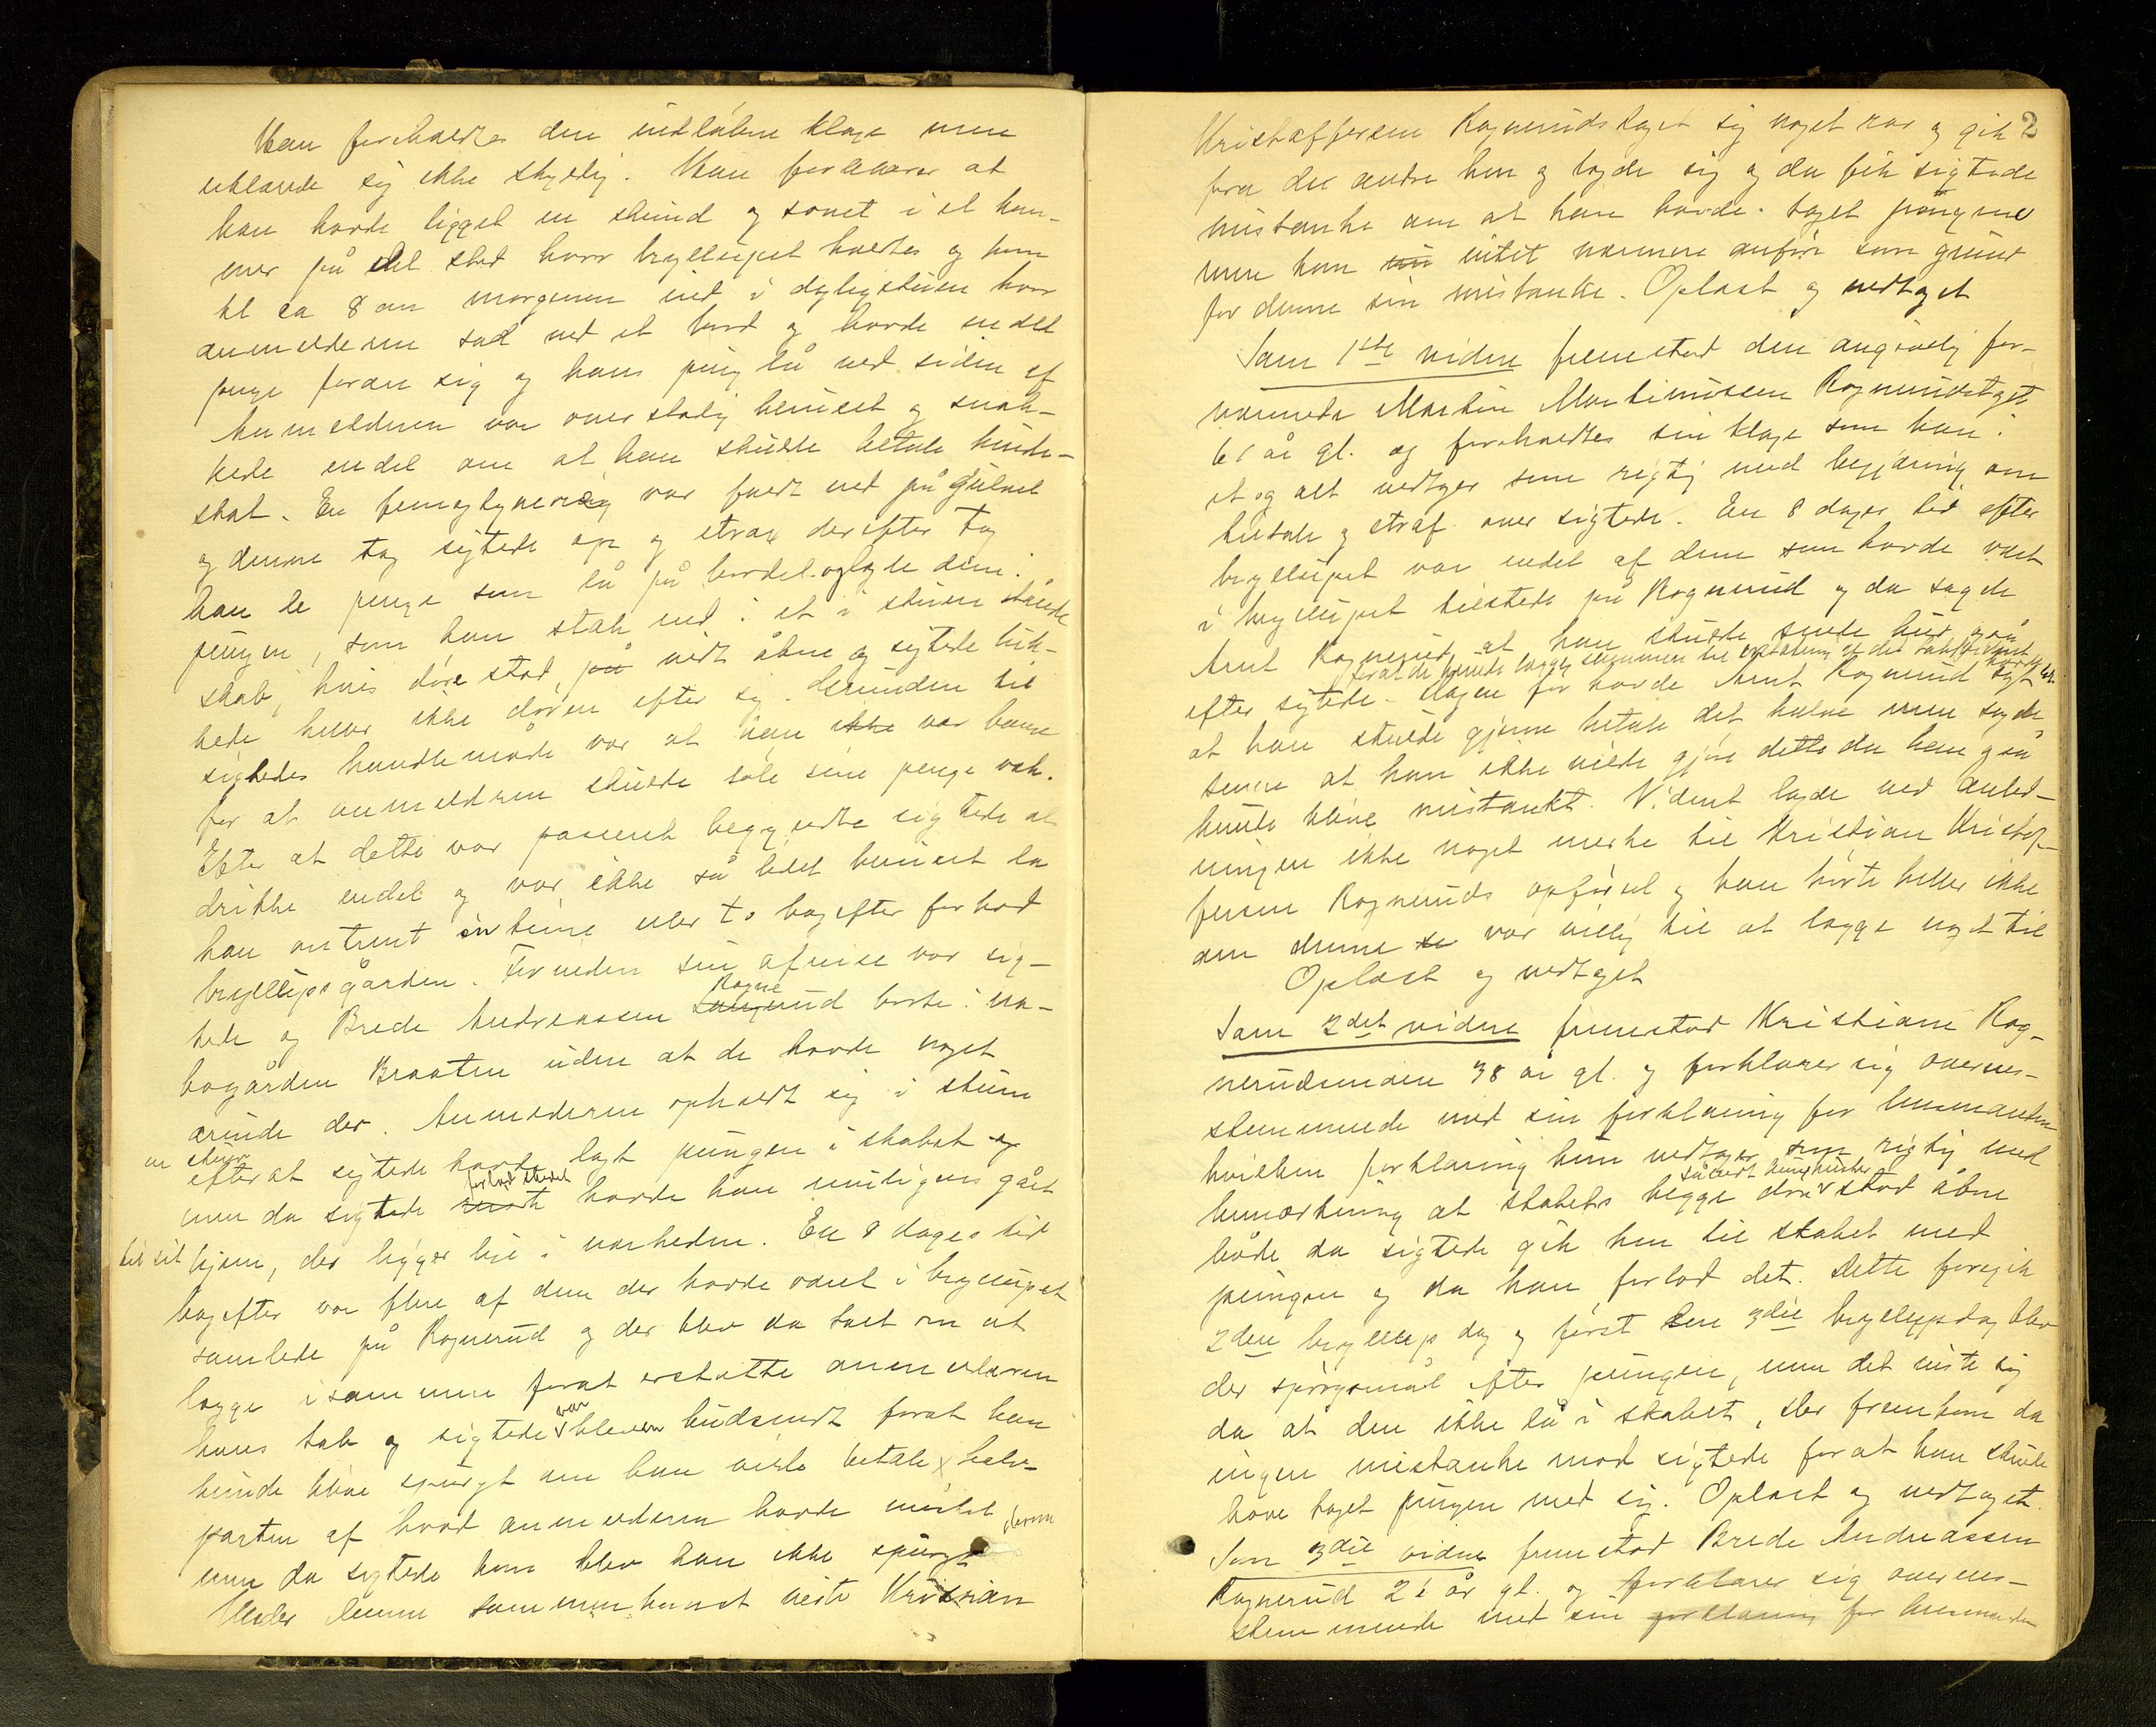 Han foreholdtes den indløbne klage men
erklærede sig ikke skyldig. Han forklarer at
han havde ligget en stund og sovet i et kam-
mer på det sted hvor bryllupet holdtes og kom
kl ca 8 om morgenen ind i dagligstuen hvor
anmelderen sad ved et bord og havde endel
penge foran sig og hans pung lå ved siden af
Anmelderen var overstadig beruset og snak-
kede endel om at han skulde betale hunde-
skat. En femogtyveøring var faldt ned på gulvet
og denne tog sigtede op og strax derefter tog
han de penge som lå på bordet og lagde dem i
pungen, som han stak ind i et i stuen stående
skab, hvis døre stod på vidt åbne og sigtede luk-
kede heller ikke døren efter sig. Grunden til
sigtedes handlemåde var at han ikke var bange
for at anmelderen skulde søle sine penge væk.
Efter at dette var passeret begyndte sigtede at
drikke endel og var ikke så lidet beruset da
han omtrent en time eller to bagefter forlod
bryllupsgården. Forinden sin afreise var sig-
Rogne
tede og Brede Andreassen rud borte i na-
bogården Braaten uden at de havde noget
ærinde der. Anmelderen opholdt sig i stuen
en stund
efter at sigtede havde lagt pungen i skabet og
forlod stedet
men da sigtede havde han muligens gået
til sit hjem, der ligger lige i nærheden. En 8 dages tid
bagefter var flere af dem der havde været i bryllupet
samlede på Rognerud og der blev da talt om at
lægge isammen forat erstatte anmelderen
var
hans tab og sigtede bleven budsendt forat han
kunde blive spurgt om han vilde betale halv-
parten af hvad anmelderen havde mistet
men da sigtede kom blev han ikke spurgt derom
Under denne sammenkomst reiste Kristian
2
Kristoffersen Rognerud taget sig noget rar og gik
fra de andre hen og lagde sig og da fik sigtede
mistanke om at han havde taget pungen
men kan intet nærmere anføre som grund
for denne sin mistanke. Oplæst og vedtaget
Som 1ste vidne fremstod den angivelig for-
nærmede Martin Martinussen Rognerudstaget
61 år gl. og foreholdtes sin klage som han i
et og alt vedtager som rigtig med begjæring om
tiltale og straf over sigtede. En 8 dages tid efter
bryllupet var endel af dem som havde været
i bryllupet tilstede på Rognerud og da sagde
Arnt Rognerud at han skulde sende bud også
forat de kunde lægge sammen til erstatning af det tab vidnet havde lidt.
efter sigtede. Dagen før havde Arnt Rognerud sagt
at han skulde gjerne betale det halve men sagde
senere at han ikke vilde gjøre dette da han også
kunde blive mistænkt. Vidnet lagde ved anled-
ningen ikke noget mærke til Kristian Kristof-
fersen Rogneruds opførsel og han hørte heller ikke
om denne var villig til at lægge noget til
Oplæst og vedtaget
Som 2det vidne fremstod Kristiane Rog-
nerudmoen 38 år gl. og forklarer sig overens-
stemmende med sin forklaring for lensmanden
hvilken forklaring hun vedtager som rigtig med
såvidt hun husker
bemærkning at skabets begge døre stod åbne
både da sigtede gik hen til skabet med
pungen og da han forlod det. Dette foregik
2den bryllupsdag og først den 3die bryllupsdag blev
der spørgsmål efter pungen, men det viste sig
da at den ikke lå i skabet, der fremkom da
ingen mistanke mod sigtede for at han skulde
have taget pungen med sig. Oplæst og vedtaget.
Som 3die vidne fremstod Brede Andreassen
Rognerud 21 år gl. og forklarer sig overens-
stemmende med sin forklaring for lensmanden